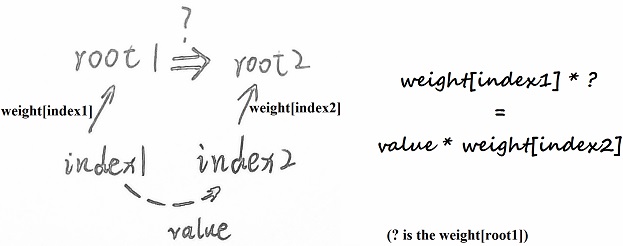 ?
root1 ⇒ root2
weight[index1]
weight[index2]
index1 index2
value
weight[index1] * ?
=
value * weight[index2]
(? is the weight[root1])